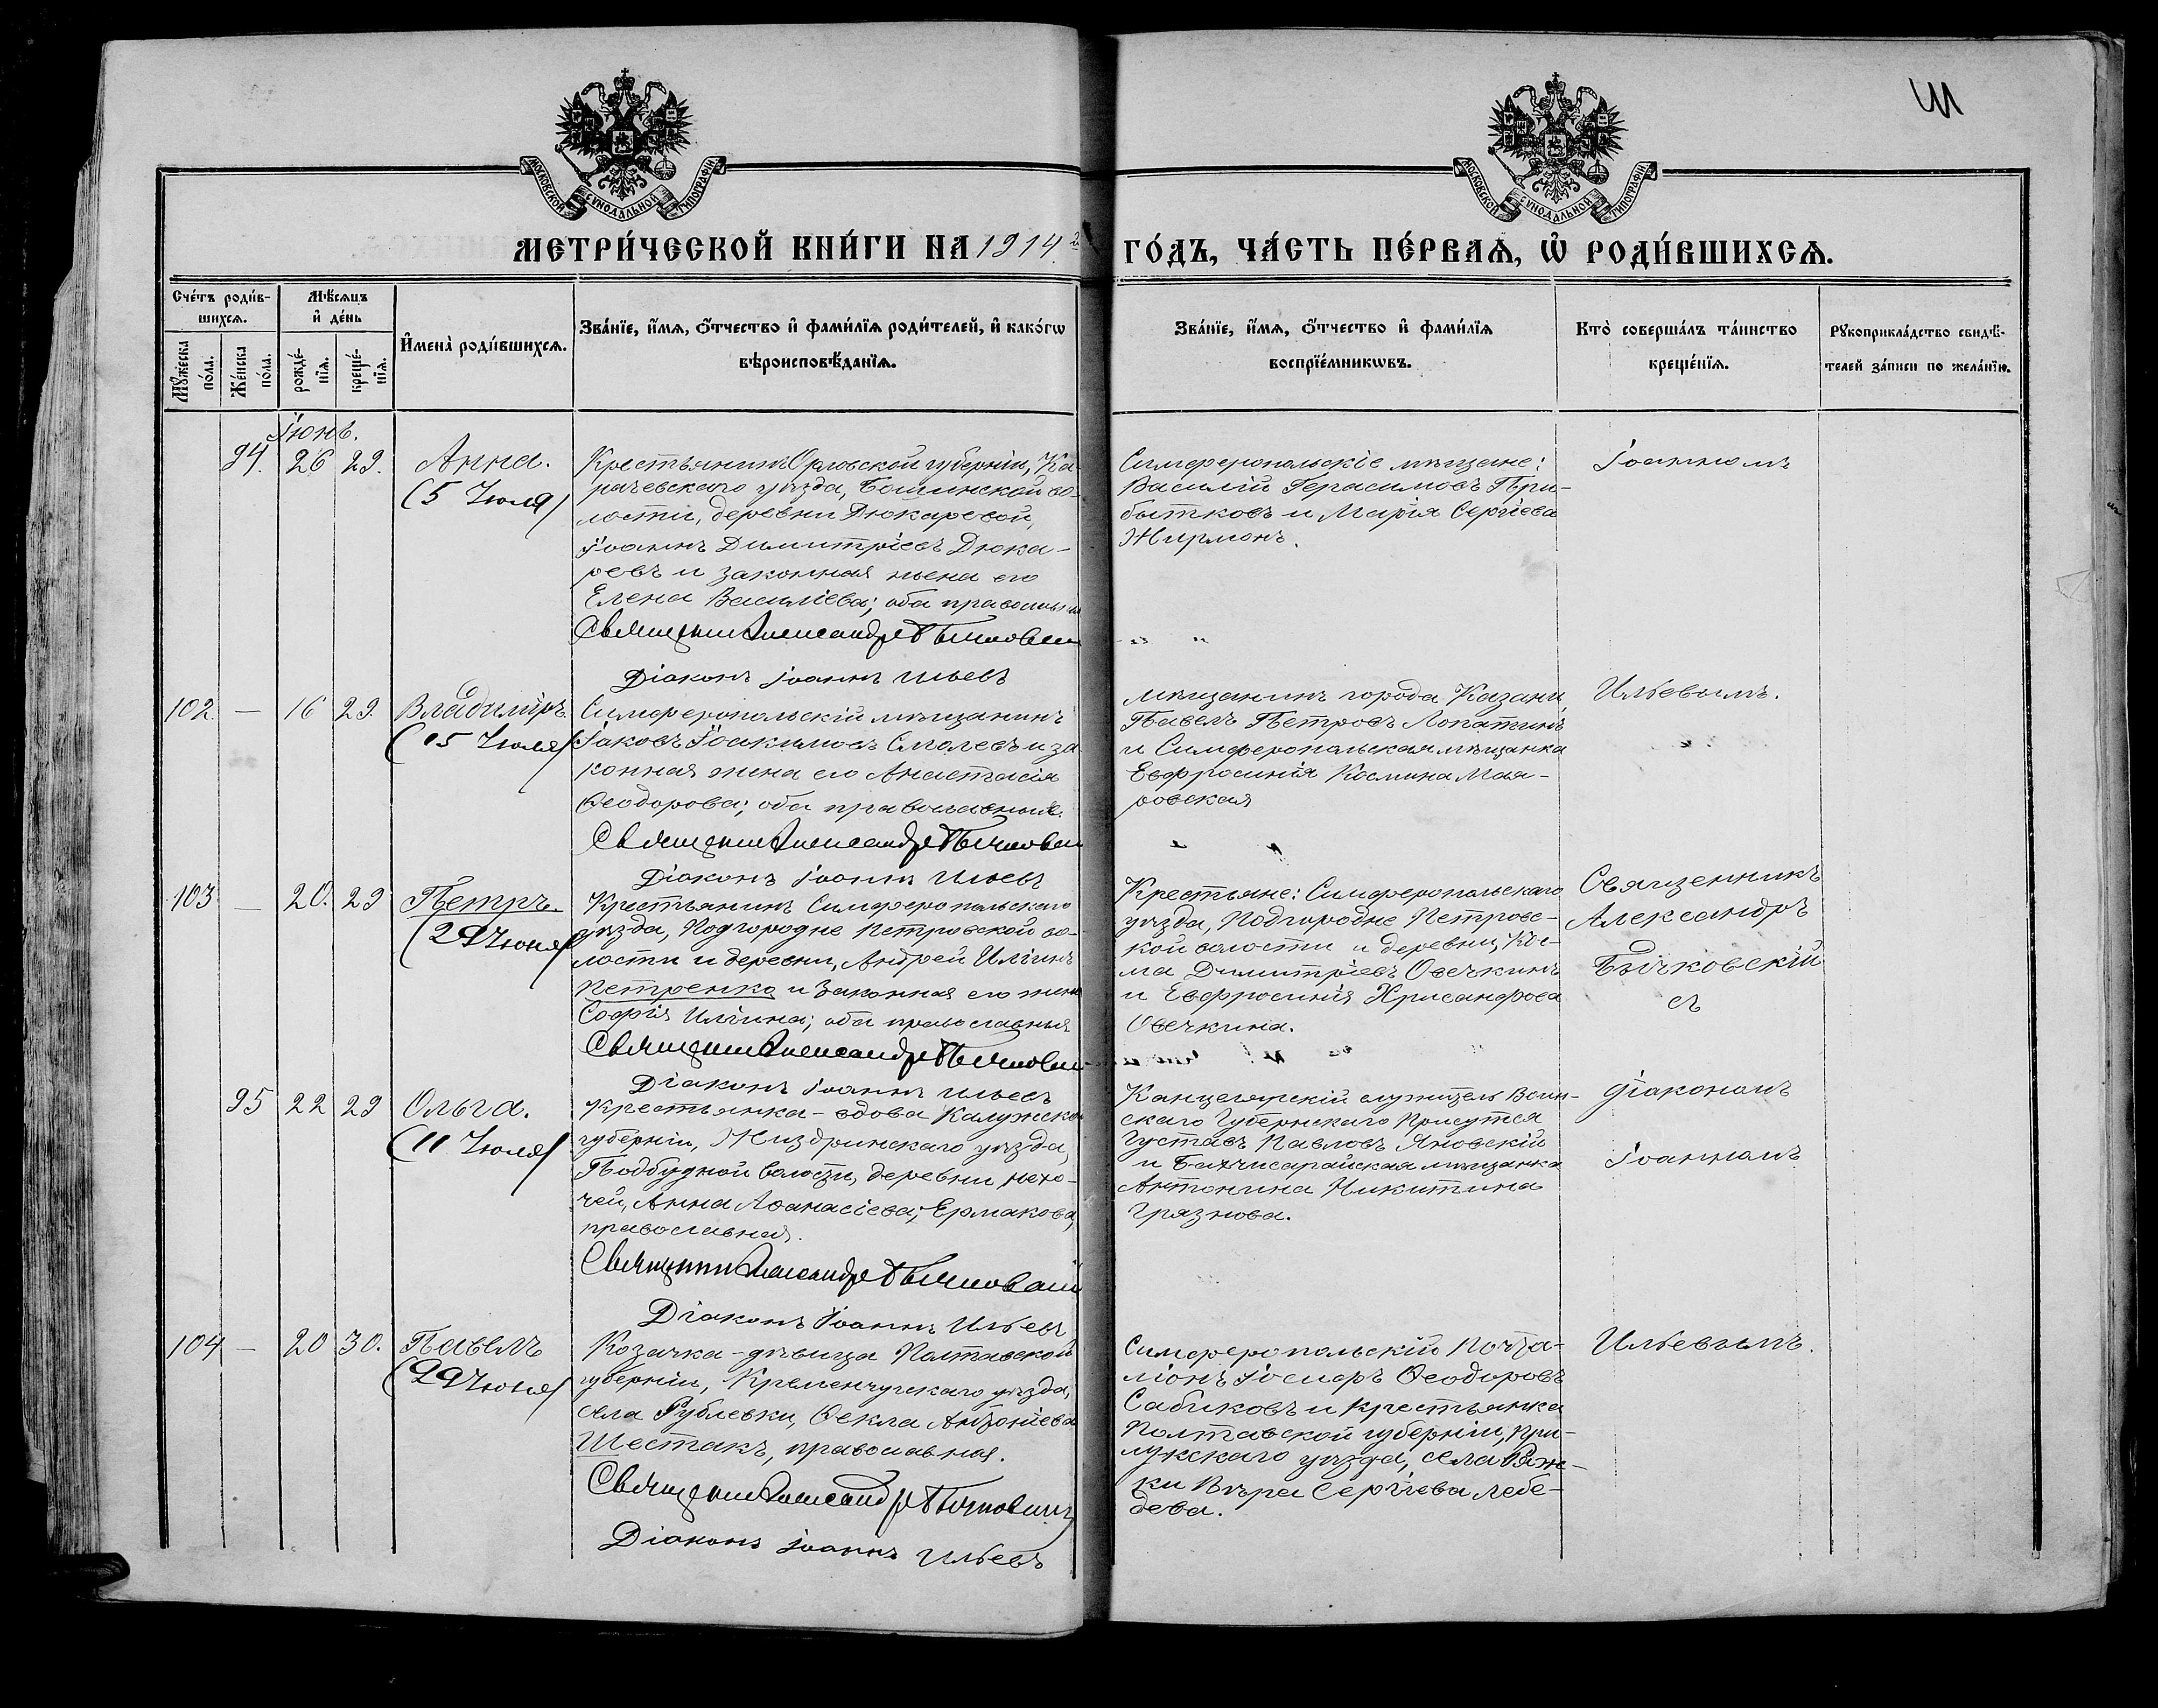 МОСКОВСКОЙ СУНОДАЛЬНОЙ ТИПОГРАФІИ
МОСКОВСКОЙ СУНОДАЛЬНОЙ ТИПОГРАФІИ
МЕТРИ́ЧЕСКОЙ КНИ́ГИ НА 1914 г.
ГО́ДЪ, ЧА́СТЬ ПЕ́РВАѦ, Ѡ҆ РОДИ́ВШИХСѦ.
Сче́тъ роди́в-
шихсѧ.
Мѣ́сѧцъ
и҆ де́нь
Мꙋ́жеска по́ла.
Же́нска по́ла.
рожде́-
нїѧ.
креще́-
нїѧ.
И҆мена̀ роди́вшихсѧ.
Зва́нїе, и҆́мѧ, ѻ҆́тчество и҆ фами́лїѧ роди́телей, и҆ како́гѡ
вѣроисповѣ́данїѧ.
Зва́нїе, и҆́мѧ, ѻ҆́тчество и҆ фами́лїѧ
воспрїе́мникѡвъ.
Кто̀ соверша́лъ та́инство
креще́нїѧ.
Рꙋкоприкла́дство свидѣ́-
телей за́писи по жела́нїю.
Іюнь.
94. 26 29. Анна.
(5 Іюля)
Крестьянинъ Орловской губерніи, Ка
рачевскаго уѣзда, Бошинской во-
лости, деревни Дюкаревой,
Іоаннъ Димитріевъ Дюка-
ревъ и законная жена его
Елена Василіева; оба православные
Священникъ Александръ Бычковскій
Діаконъ Іоаннъ Ильевъ
Симферопольскіе мѣщане:
Василій Герасимовъ При-
бытковъ и Марія Сергіева
Жирмонъ.
Іоанномъ
102. — 16 29. Владиміръ.
(15 Іюля)
Симферопольскій мѣщанинъ
Іаковъ Іоакимовъ Смолевъ и за
конная жена его Анастасія
Ѳеодорова; оба православные.
Священникъ Александръ Бычковскій
Діаконъ Іоаннъ Ильевъ
мѣщанинъ города Казани,
Павелъ Петровъ Лопатинъ
и Симферопольская мѣщанка
Евфросинія Космина Мая-
ровская
Ильевымъ.
103 — 20. 29 Петръ.
(29 Іюня)
Крестьянинъ Симферопольскаго
уѣзда, Подгородне Петровской во-
лости и деревни, Андрей Иліинъ
Петренко и законная его жена
Софія Иліина; оба православные
Священникъ Александръ Бычковскій
Діаконъ Іоаннъ Ильевъ
Крестьяне: Симферопольскаго
уѣзда, Подгородне Петровс-
кой волости и деревни, Кос-
ма Димитріевъ Овечкинъ
и Евфросинія Хрисанфова
Овечкина.
Священникъ
Александръ
Бычковскій
съ
95 22 29 Ольга.
(11 Іюля)
Крестьянка-вдова Калужской
губерніи, Жиздринскаго уѣзда,
Подбудной волости, деревни Нехо-
чей, Анна Аѳанасіева, Ермакова,
православная.
Священникъ Александръ Бычковскій
Діаконъ Іоаннъ Ильевъ
Канцелярскій служитель Воин-
скаго Губернскаго Присутсвія
Густавъ Павловъ Яновскій
и Бахчисарайская мѣщанка
Антонина Никитина
Грязнова.
діакономъ
Іоанномъ
104 — 20 30. Павелъ
(29 Іюня)
Козачка-дѣвица Полтавской
губерніи, Кременчугскаго уѣзда,
села Рублевки, Ѳекла Антоніева
Шестакъ, православная.
Священникъ Александръ Бычковскій
Діаконъ Іоаннъ Ильевъ
Симферопольскій Почта-
ліонъ Іосифъ Ѳеодоровъ
Сабиковъ и крестьянка
Полтавской губерніи, При-
лукскаго уѣзда, села Ряж-
ки Вѣра Сергіева Лебе-
дева.
Ильевымъ.